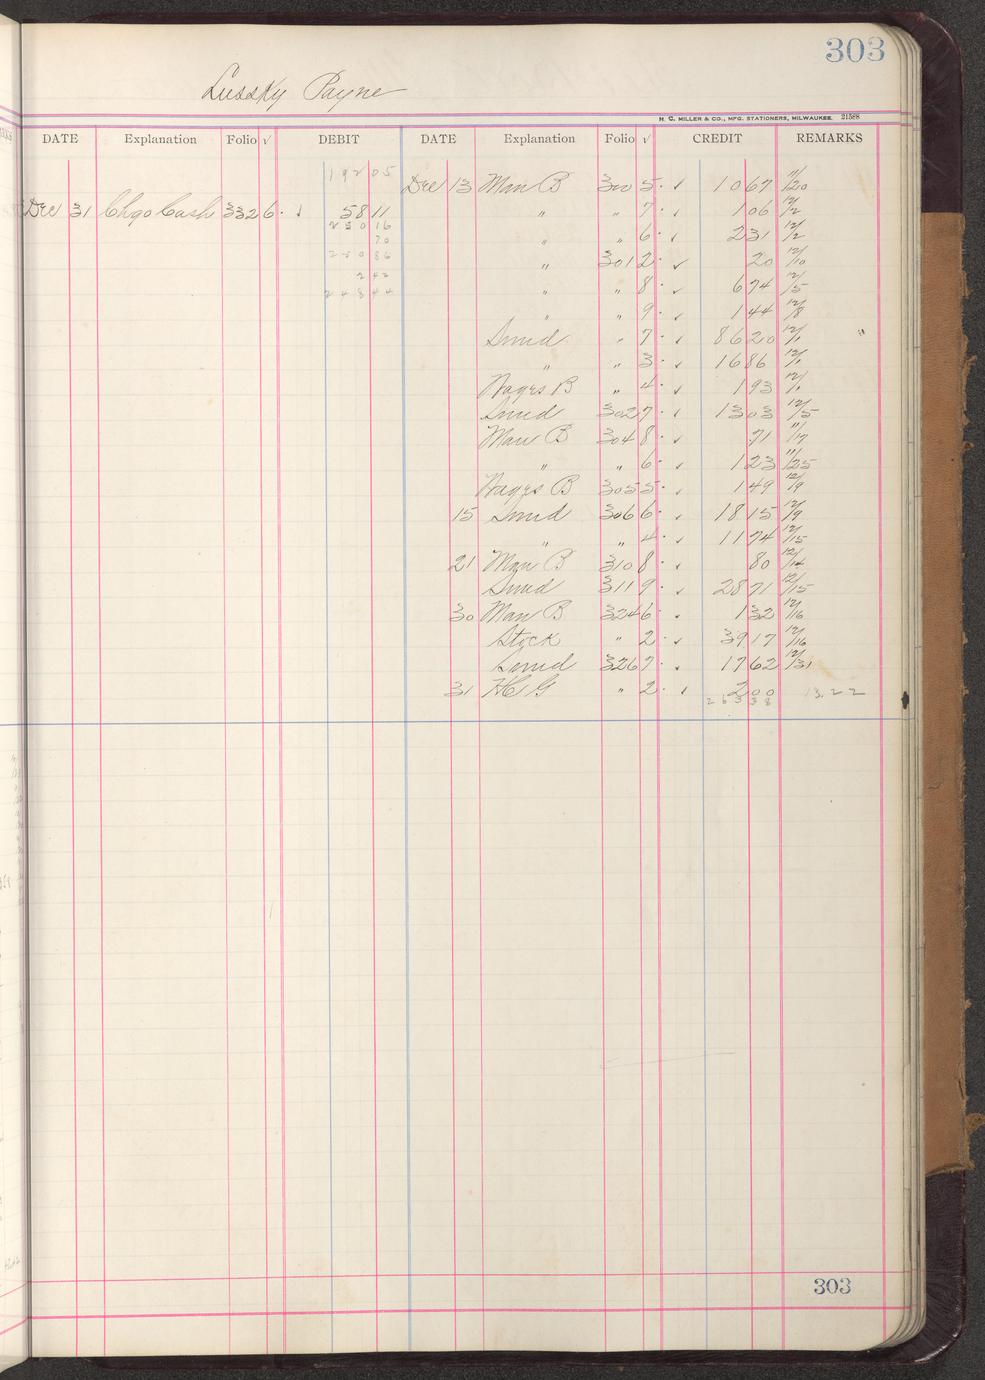 303
Lussky Payne
H. C. MILLER & CO., MFG. STATIONERS, MILWAUKEE. 21588
DATE Explanation Folio √ DEBIT DATE Explanation Folio √ CREDIT REMARKS
192 05 Dec 13 Man B 300 5 · ✓ 10 67 11/20
Dec 31 Chgo Cash 332 6 · ✓ 58 11 " " 7 · ✓ 1 06 12/2
250 16 " " 6 · ✓ 2 31 12/2
70
250 86 " 301 2 · ✓ 20 12/10
2 42 " " 8 · ✓ 6 74 12/5
248 44 " " 9 · ✓ 1 44 12/8
Smid " 7 · ✓ 86 20 12/1
" " 3 · ✓ 16 86 12/1
Wagrs B " 4 · ✓ 1 93 12/1
Smid 302 7 · ✓ 13 03 12/5
Man B 304 8 · ✓ 71 11/17
" " 6 · ✓ 1 23 11/25
Wagrs B 305 5 · ✓ 1 49 12/9
15 Smid 306 6 · ✓ 18 15 12/9
" " 4 · ✓ 11 74 12/15
21 Man B 310 8 · ✓ 80 12/14
Smid 311 9 · ✓ 28 71 12/15
30 Man B 324 6 · ✓ 1 32 12/16
Stock " 2 · ✓ 39 17 12/16
Smid 326 7 · ✓ 17 62 12/31
31 H G " 2 · ✓ 2 00 13.22
263 38
303